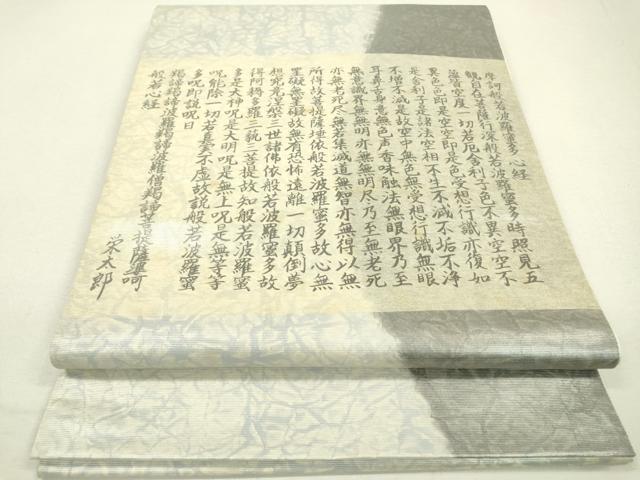 摩訶般若波羅蜜多心経
観自在菩薩行深般若波羅蜜多時照見五
蘊皆空度一切苦厄舎利子色不異空空不
異色色即是空空即是色受想行識亦復如
是舎利子是諸法空相不生不滅不垢不浄
不増不減是故空中無色無受想行識無眼
耳鼻舌身意無色声香味触法無眼界乃至
無意識界無無明亦無無明尽乃至無老死
亦無老死尽無苦集滅道無智亦無得以無
所得故菩提薩埵依般若波羅蜜多故心無
罣礙無罣礙故無有恐怖遠離一切顛倒夢
想究竟涅槃三世諸佛依般若波羅蜜多故
得阿耨多羅三藐三菩提故知般若波羅蜜
多是大神呪是大明呪是無上呪是無等等
呪能除一切苦真実不虚故説般若波羅蜜
多呪即説呪曰
羯諦羯諦波羅羯諦波羅僧羯諦菩提薩婆訶
般若心経
栄太郎